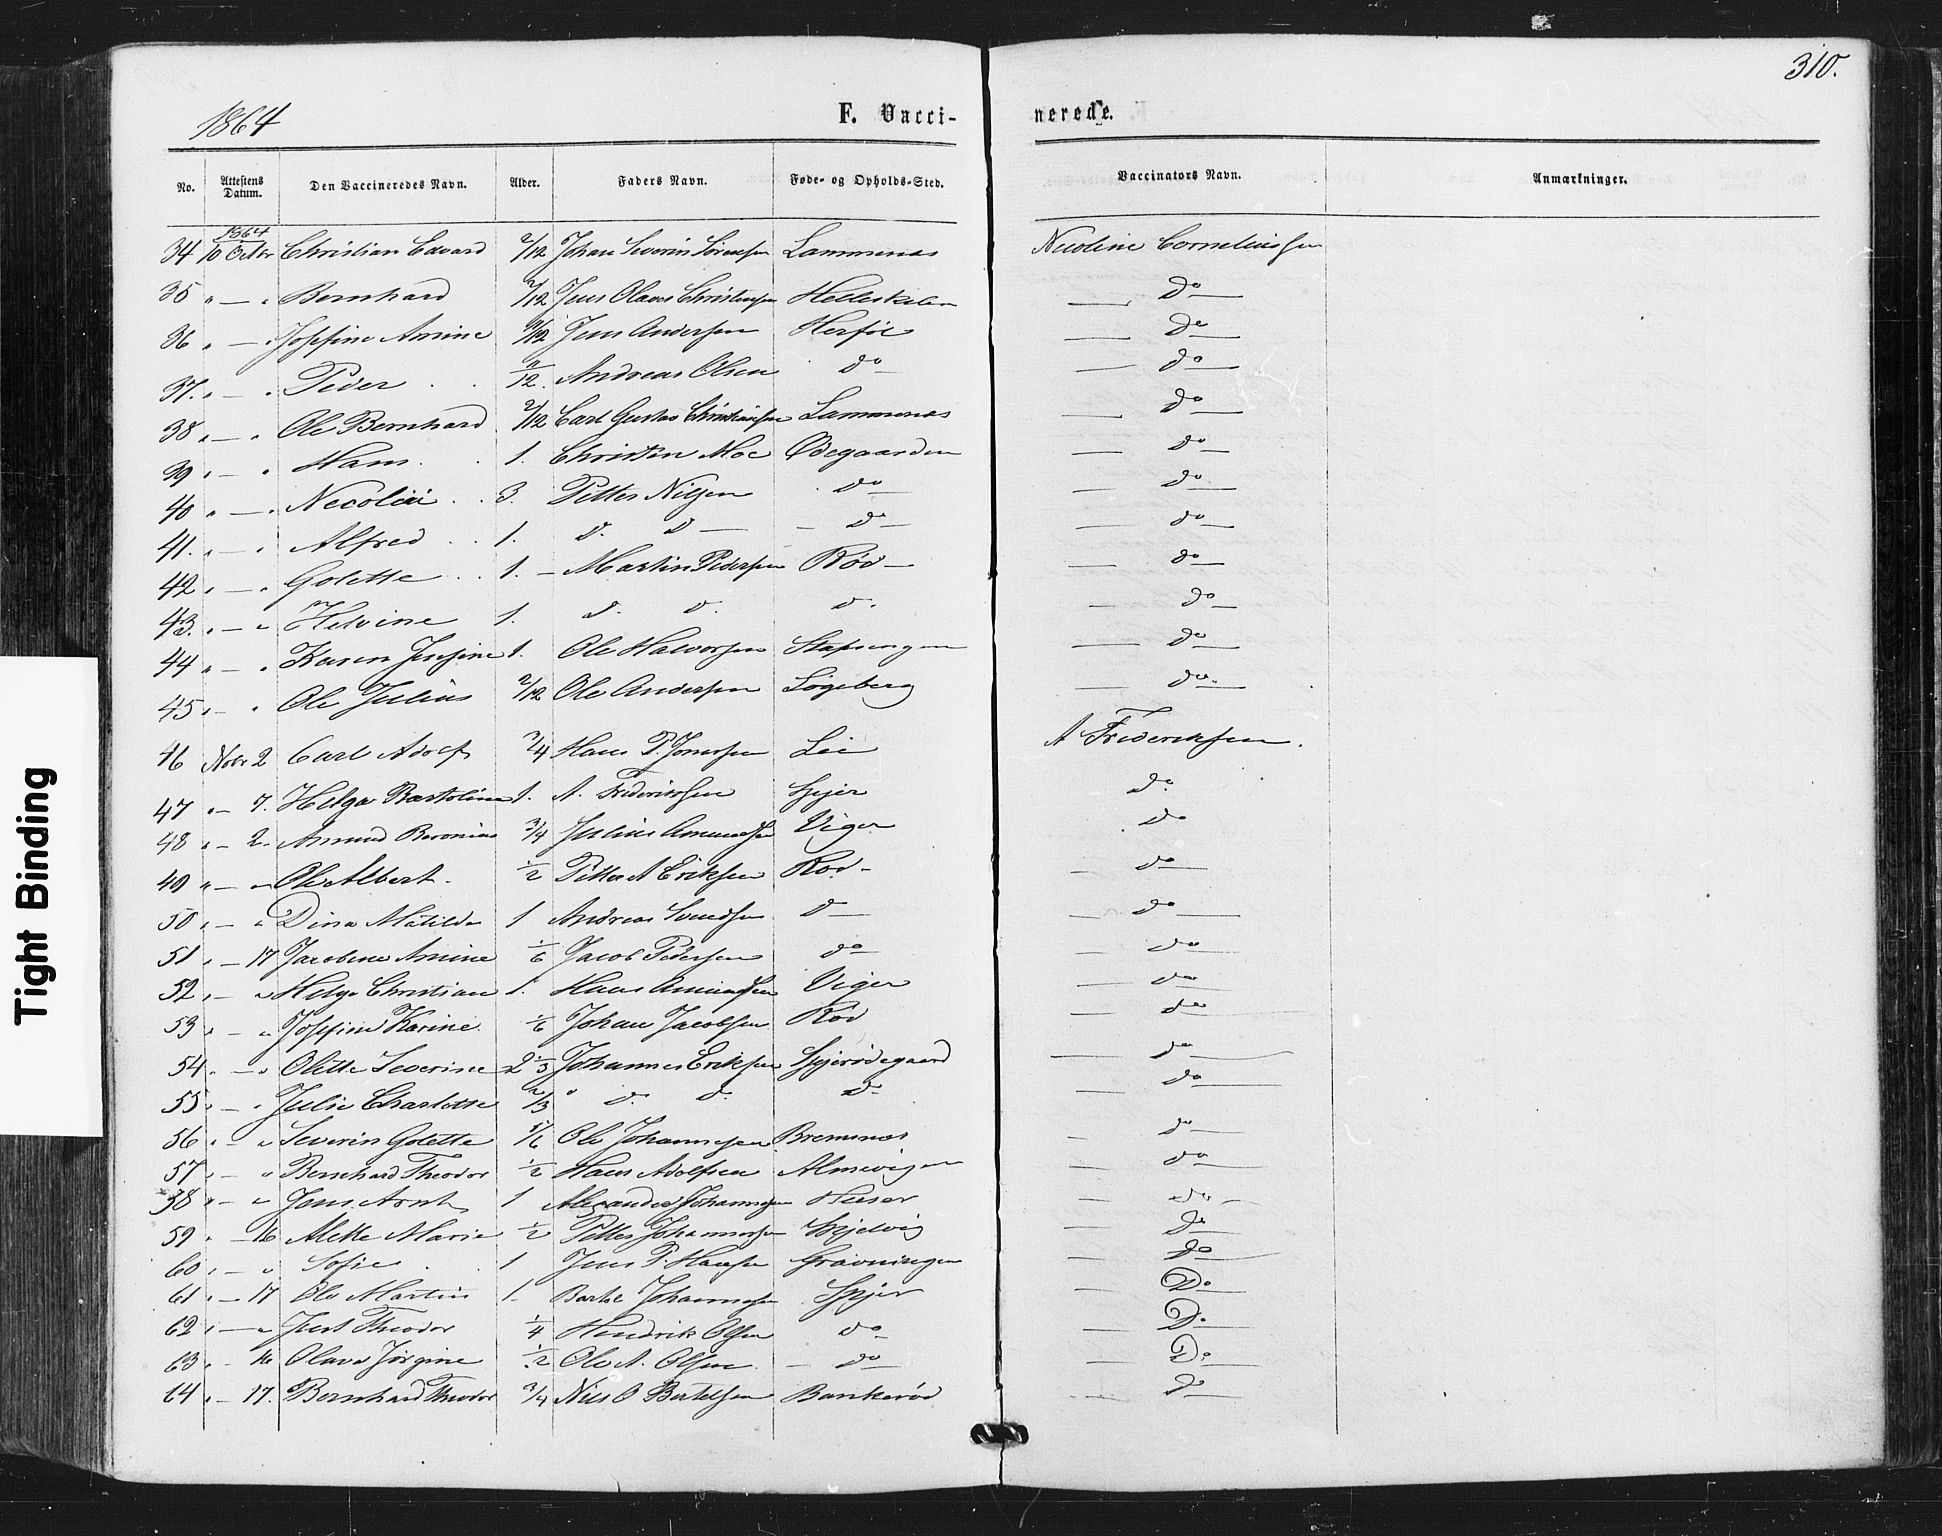 310.
1864 F. Vacci- nerede.
No. Attestens Datum. Den Vaccineredes Navn. Alder. Faders Navn. Føde- og Opholds-Sted. Vaccinators Navn. Anmærkninger.
1864
34 10 Octbr Christian Edvard 2/12 Johan Severin Sørensen Lammenæs Nicoline Corneliussen
35 " — " Bernhard 2/12 Jens Olaves Christensen — do —
36 " — " Josefine Amine 9/12 Jens Andersen Herføl — do —
37. " — " Peder 2/12. Andreas Olsen do — do —
38 " — " Ole Bernhard 2/12 Carl Gustav Christiansen Lammenæs — do —
39 " — " Hans. 1. Christen Moe Ødegaarden — do —
40 " — " 3. Petter Nilsen do — do —
41. " — " Alfred 1. D. D — — do — — do —
42 " — " Golette 1. — Martin Pedersen Rød — — do —
43. " — " Helvine 1. D. D. D. — do —
44 " — " Karen Josefine 1. Ole Halvorsen Stafsengen — do —
45 " — " Ole Julius 2/12 Ole Andersen Løgeberg — do —
46 Nobr 2 Carl Adolf 3/4 Hans P. Jonssen Lie A Frederiksen.
47 " — 7. Helga Bartoline 1. A. Frederiksen Spjer do
48 " — 2 Amund Beronius 3/4 Julius Amundsen Viger do
49 " — " Ole Albert. 1/2 Petter A Eriksen Rød — do —
50 " — " Dina Matilde 1 Andreas Svendsen D — — do —
51 " — 17 Jacobine Amine 1/6 Jacob Pedersen do — do —
52 " — " Helge Christian 1. Hans Amundsen Viger — do —
53 " — " Josefine Karine 1/6 Johan Jacobsen Rød — do —
54 " — " Olette Severine 2 1/3 Johannes Eriksen Spjerødegaard — do —
55 " — " Julie Charlotte 2/3 " D. D. D. — do —
56 " — " Severin Golette 5/6 Ole Johannesen Bremsnæs — do —
57 " — " Bernhard Theodor 1/2 Hans Adolfsen Almevigen — do —
58 " — " Jens Arnt 1 Alexander Johannesen Huser — do —
59 " — 16 Alette Marie 1/2 Petter Johannesen Spjelvig — do —
60 " — " Sofie 1 Jens P. Hansen Gravningen — do —
61 " — 17 Ole Martin 1. Johannesen Spjer — Do —
62 " — " Theodor 1/4 Hendrik Olsen do — Do —
63 " — 16 Olava Jørgine 1/2 Ole A. Olsen. — do — Do —
64 " — 17. Bernhard Theodor 3/4 Nils O Bertelsen Bankerød — do —
Tight Binding